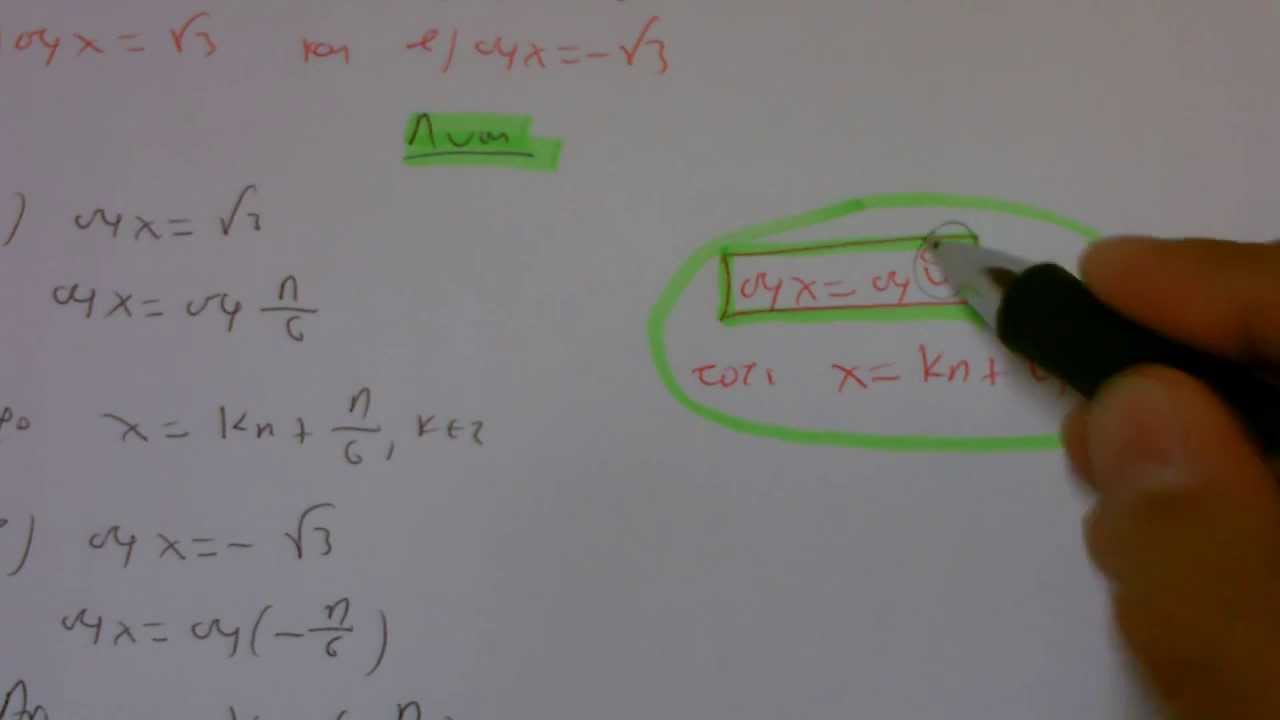 ) σφx = √3 και ε) σφx = -√3
Λύση
) σφx = √3
σφx = σφ π/6
x = kπ + π/6, k∈Z
) σφx = - √3
σφx = σφ(-π/6)
σφx = σφ
τότε x = kπ +